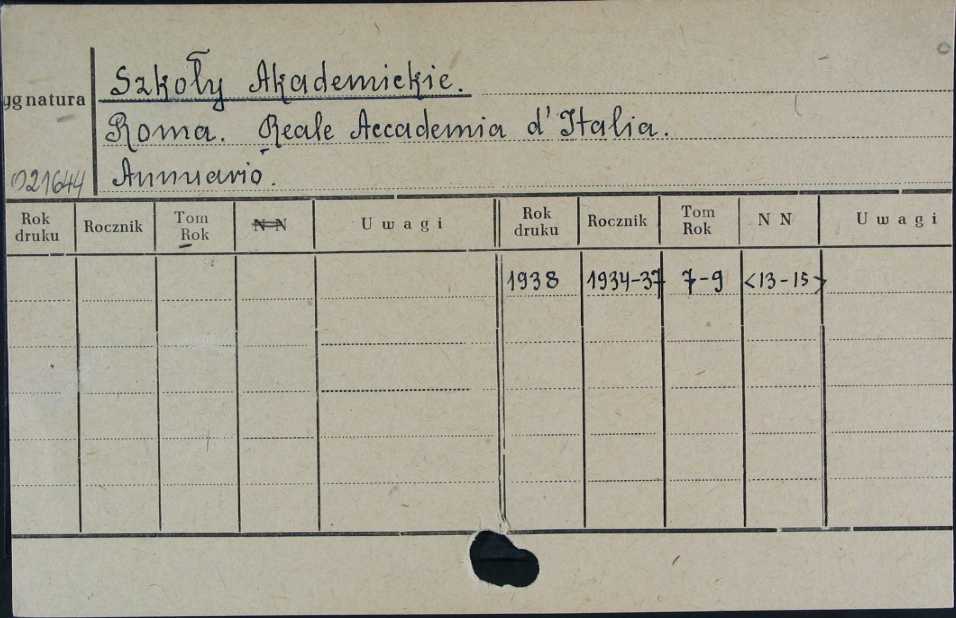 Szkoły Akademickie.
ygnatura
Roma. Reale Accademia d'Italia.
021644
Annuario.
Rok druku Rocznik Tom Rok N N Uwagi Rok druku Rocznik Tom Rok N N Uwagi
1938 1934-37 7-9 <13-15>